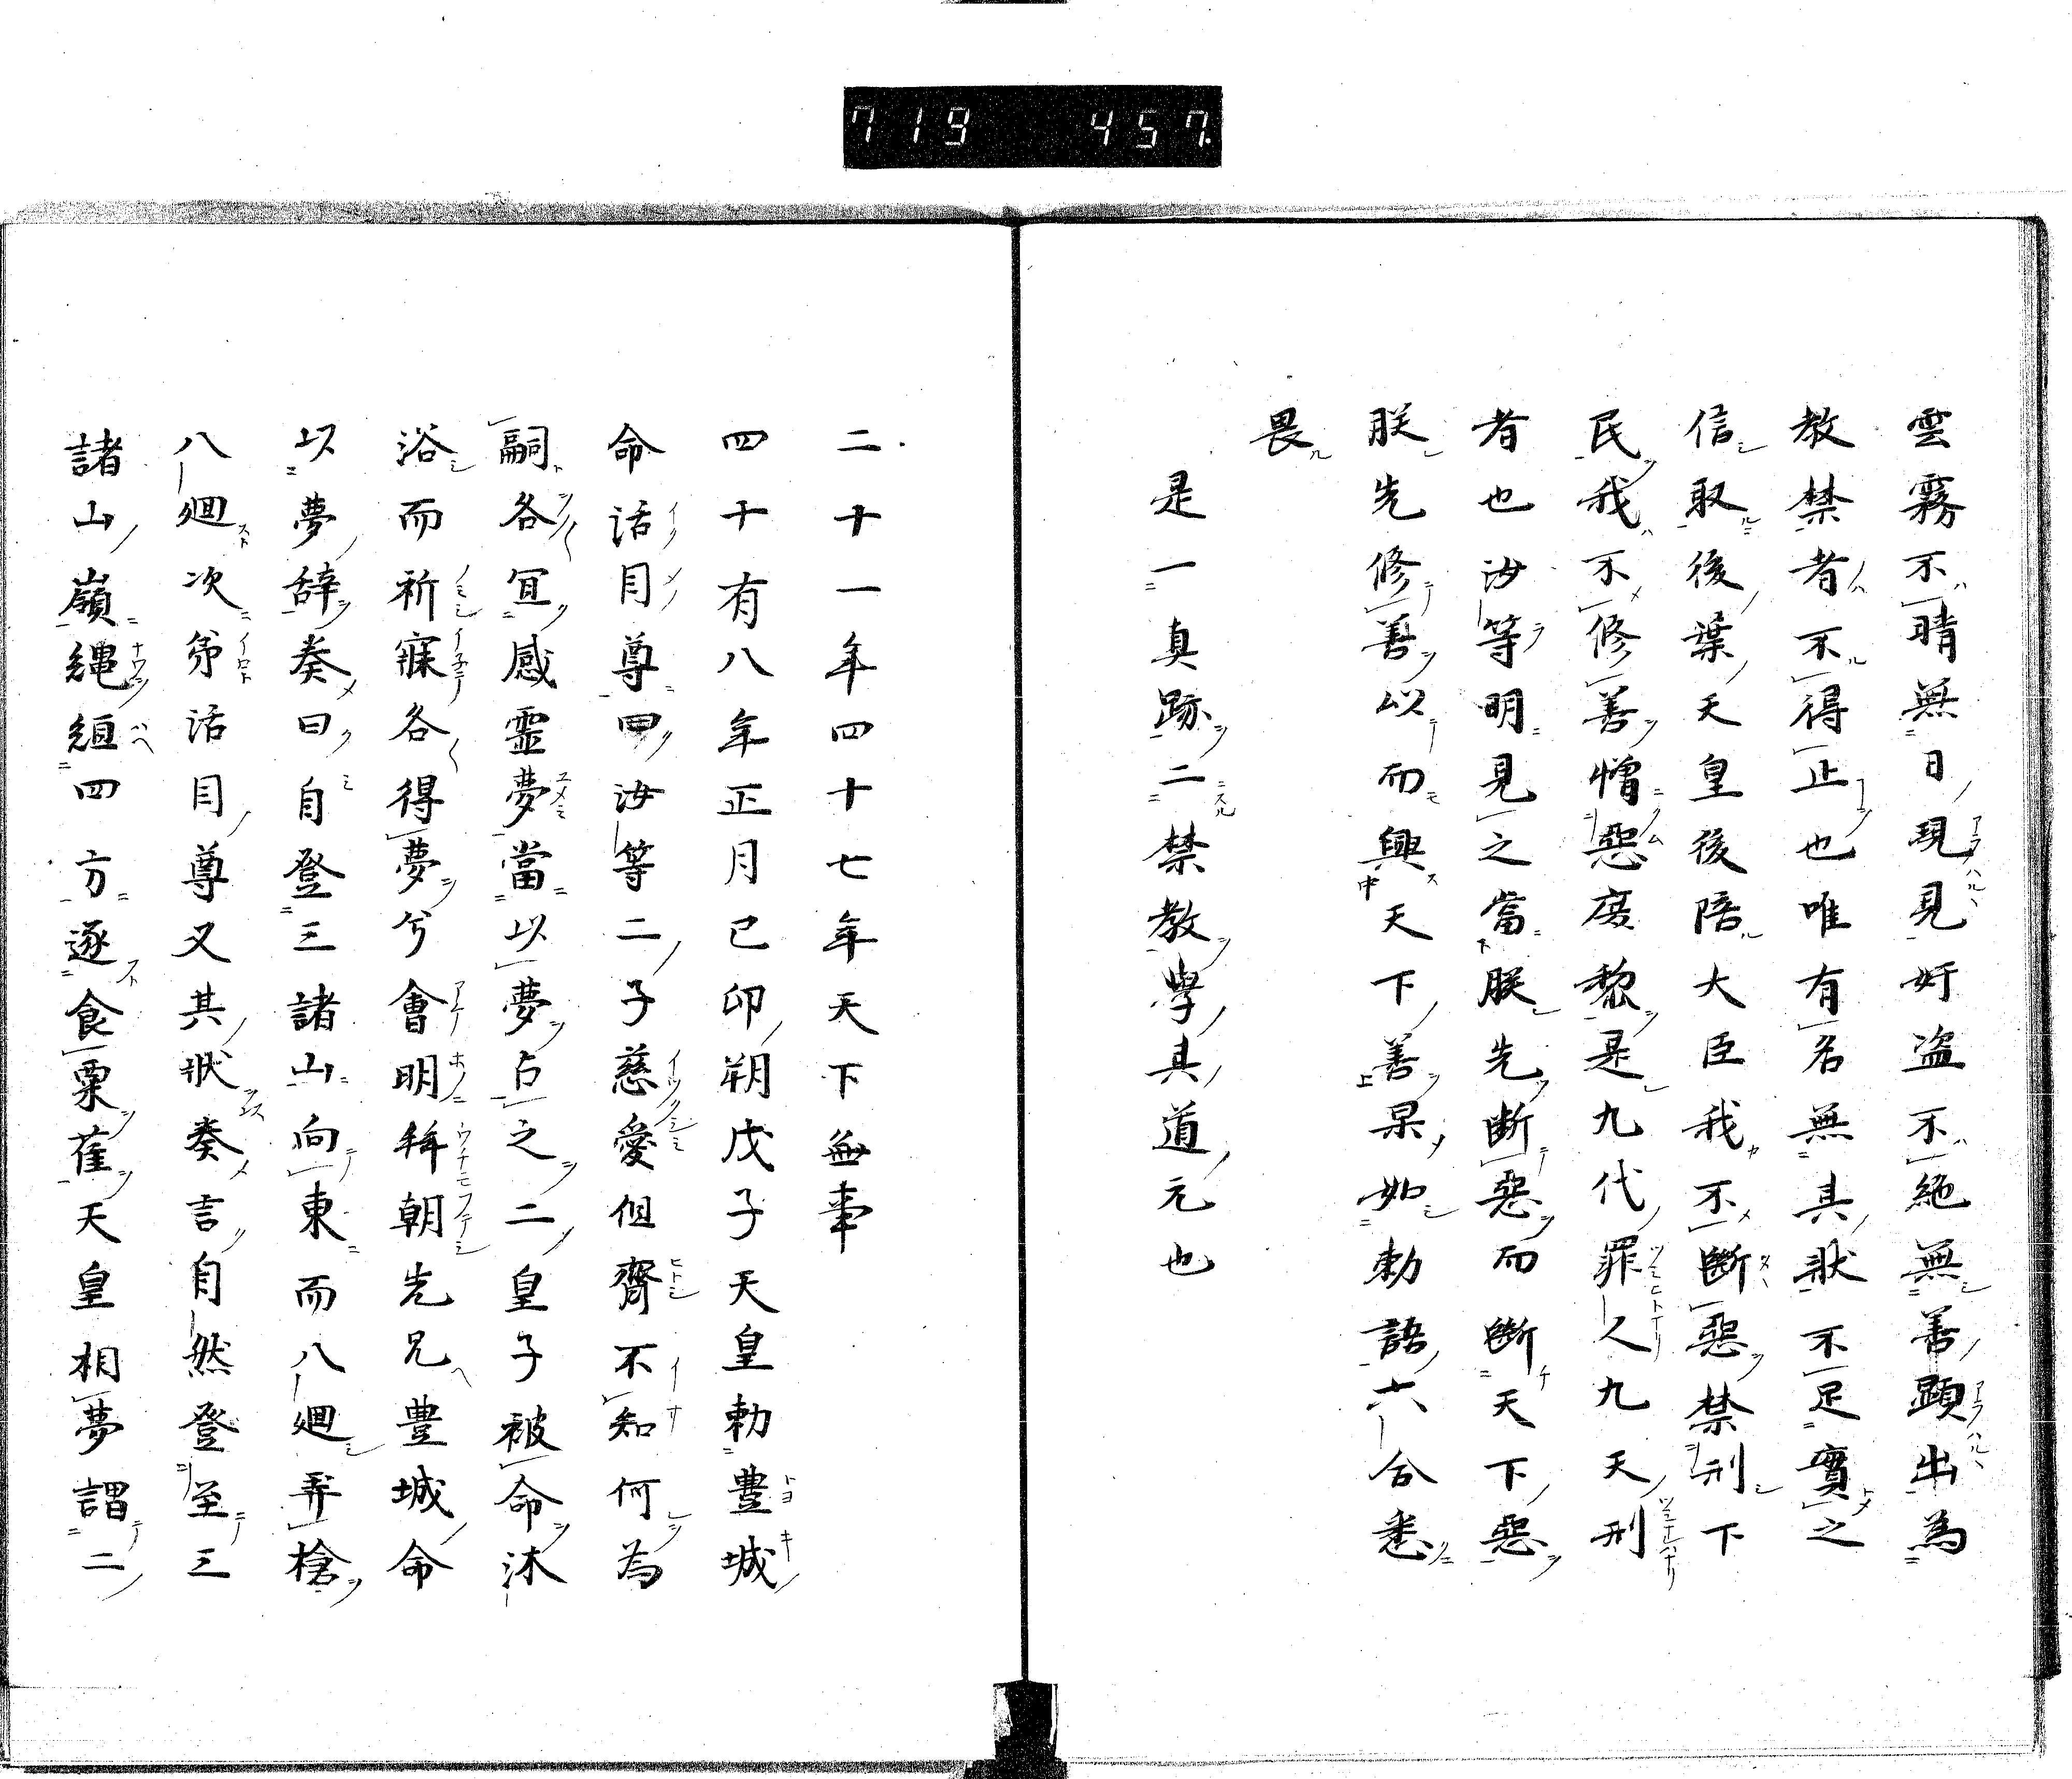 719 457
雲霧不晴無日現見奸盗不絶無善顕出為
教禁者不得正也唯有名無其状不足實之
信取後葉天皇後陪大臣我不断惡禁刑下
民我不修善憎惡廢黎是九代罪人九天刑
者也汝等明見之當朕先断惡而断天下惡
朕先修善以而興天下善杲如勅語六合悉
畏
是一真跡二禁教學其道元也
二十一年四十七年天下無事
四十有八年正月己卯朔戊子天皇勅豊城
命活目尊曰汝等二子慈愛但齊不知何為
嗣各冝感霊夢當以夢占之二皇子被命沐
浴而祈寐各得夢兮會明祥朝先兄豊城命
以夢辞奏曰自登三諸山向東而八廻弄槍
八廻次第活目尊又其状奏言自然登至三
諸山嶺縄絙四方逐食粟雀天皇相夢謂二